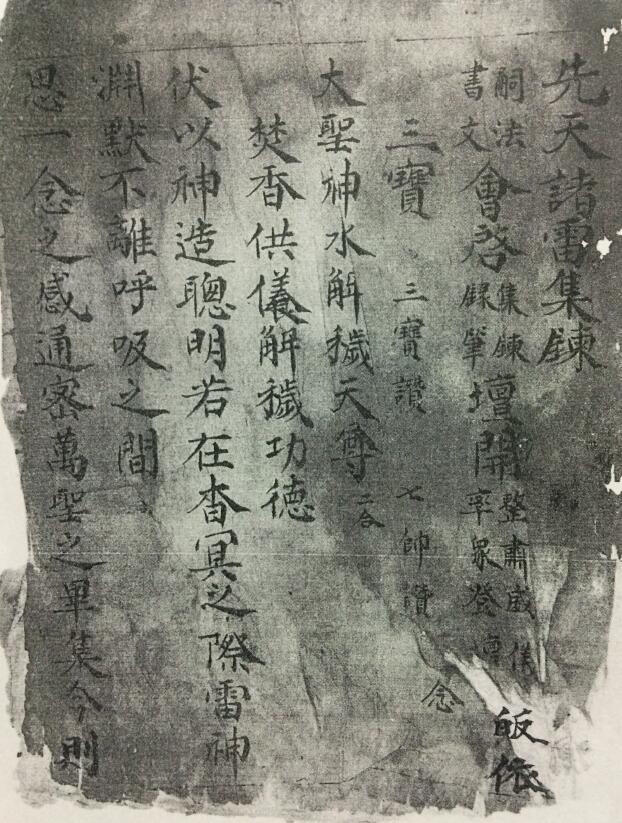 先天諸雷集鍊
嗣法書文會啓集鍊錄筆壇開整肅威儀率衆登壇皈依
三寶 三寶讚 七帥讚 念
大聖神水解穢天尊 二合
焚香供儀解穢功德
伏以神造聰明若在杳冥之際雷神
淵默不離呼吸之間
思一念之感通密萬聖之畢集今則